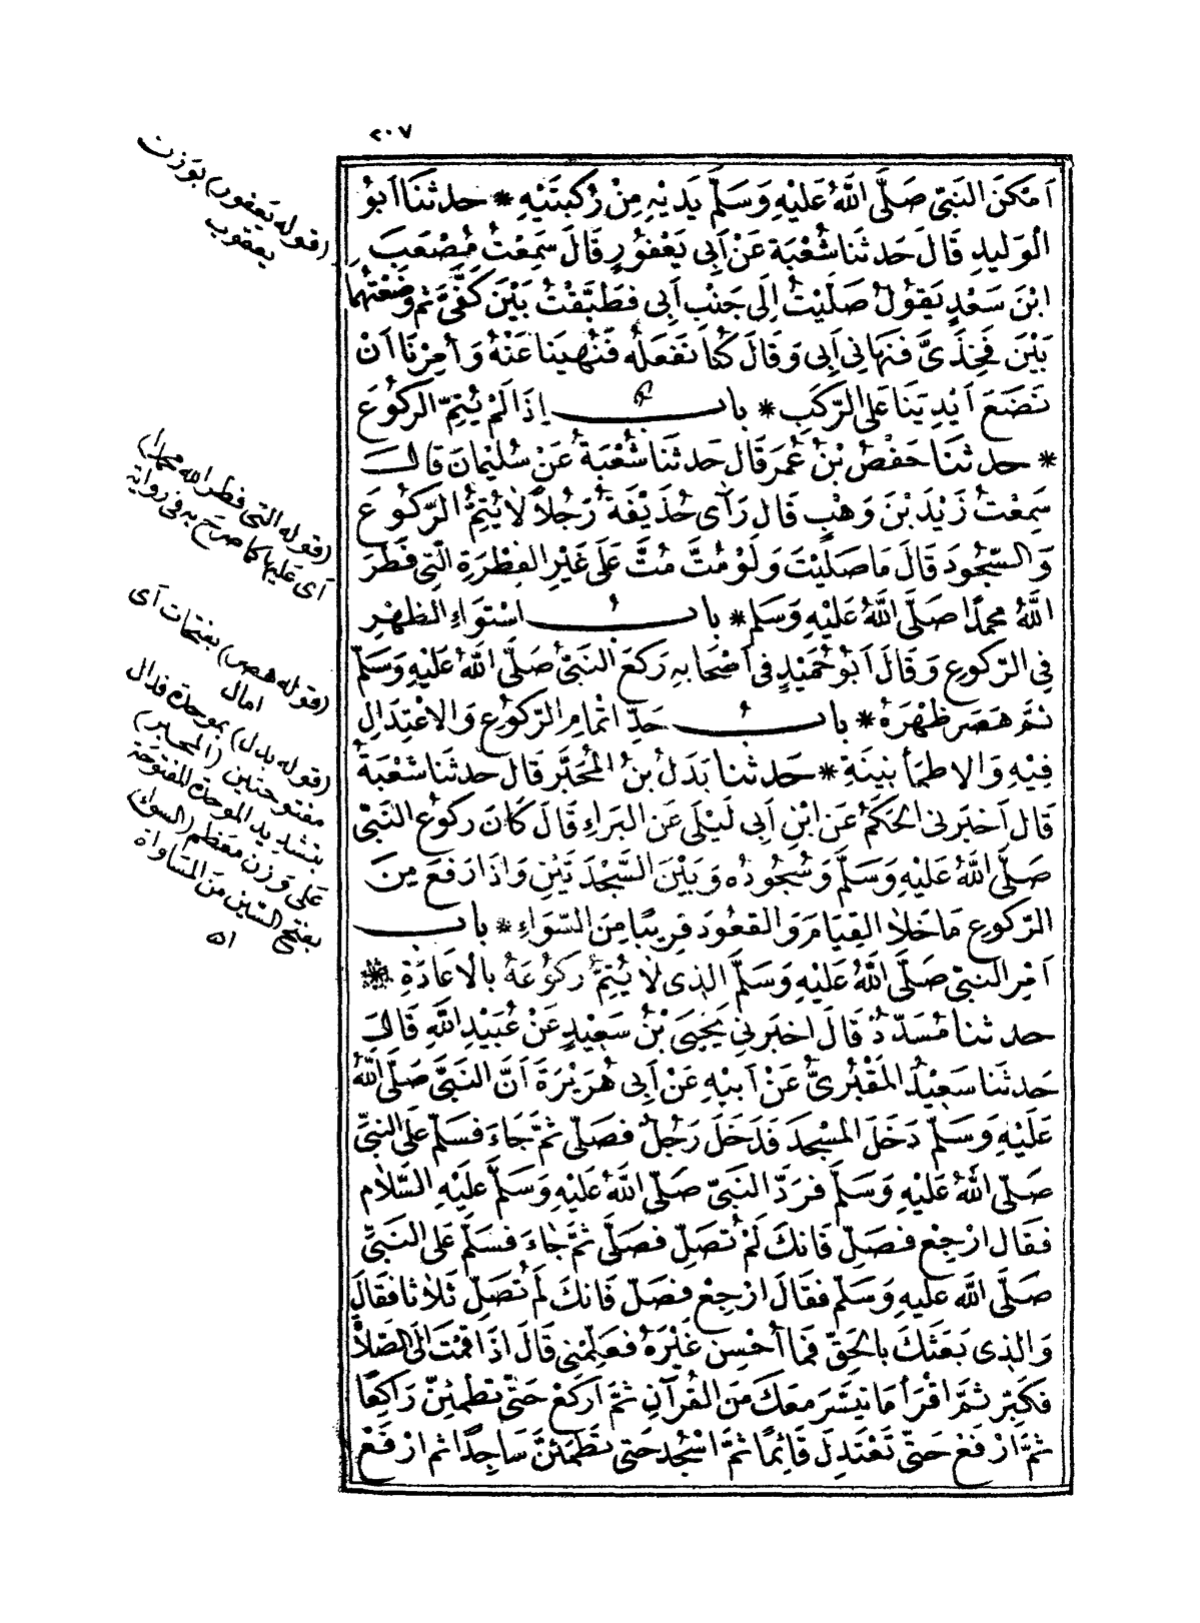 ٢٠٧
اَمْكَنَ النَّبِىُّ صَلَّى اللّٰهُ عَلَيْهِ وَسَلَّمَ يَدَيْهِ مِنْ رُكْبَتَيْهِ * حدثنا اَبُو
الْوَليدِ قَالَ حَدثنا شُعْبَةُ عَنْ اَبِى يَعْفُورٍ قَالَ سَمِعْتُ مُصْعَبَ
ابْنَ سَعْدٍ يَقُولُ صَلَّيْتُ اِلَى جَنْبِ اَبِى فَطَبَّقْتُ بَيْنَ كَفَّىَّ ثُمَّ وَضَعْتُهُمَا
بَيْنَ فَخِذَىَّ فَنَهَانِى اَبِى وَقَالَ كُنَّا نَفْعَلُهُ فَنُهِينَا عَنْهُ وَاُمِرْنَا اَنْ
نَضَعَ اَيْدِيَنَا عَلَى الرُّكَبِ * باب اِذَا لَمْ يُتِمَّ الرُّكُوعَ
* حدثنا حَفْصُ بْنُ عُمَرَ قَالَ حَدثنا شُعْبَةُ عَنْ سُلَيْمَانَ قَالَ
سَمِعْتُ زَيْدَ بْنَ وَهْبٍ قَالَ رَأَى حُذَيْفَةُ رَجُلاً لَا يُتِمُّ الرُّكُوعَ
وَالسُّجُودَ قَالَ مَا صَلَّيْتَ وَلَوْ مُتَّ مُتَّ عَلَى غَيْرِ الْفِطْرَةِ الَّتِى فَطَرَ
اللّٰهُ مُحَمَّدًا صَلَّى اللّٰهُ عَلَيْهِ وَسَلَّمَ * بابُ اسْتِوَاءِ الظَّهْرِ
فِى الرُّكُوعِ وَقَالَ اَبُو حُمَيْدٍ فِى اَصْحَابِهِ رَكَعَ النَّبِىُّ صَلَّى اللّٰهُ عَلَيْهِ وَسَلَّمَ
ثُمَّ هَصَرَ ظَهْرَهُ * بابُ حَدِّ اِتْمَامِ الرُّكُوعِ وَالِاعْتِدَالِ
فِيْهِ وَالِاطْمَأْنِينَةِ * حَدثنا بَدَلُ بْنُ الْمُحَبَّرِ قَالَ حدثنا شُعْبَةُ
قَالَ اَخْبَرَنِى الْحَكَمُ عَنِ ابْنِ اَبِى لَيْلَى عَنِ الْبَرَاءِ قَالَ كَانَ رُكُوعُ النَّبِىِّ
صَلَّى اللّٰهُ عَلَيْهِ وَسَلَّمَ وَسُجُودُهُ وَبَيْنَ السَّجْدَتَيْنِ وَاِذَا رَفَعَ مِنَ
الرُّكُوعِ مَا خَلَا الْقِيَامَ وَالْقُعُودَ قَرِيبًا مِنَ السَّوَاءِ * باب
اَمْرِ النَّبِىِّ صَلَّى اللّٰهُ عَلَيْهِ وَسَلَّمَ الذى لَا يُتِمُّ رُكُوعَهُ بِالْاِعَادَةِ *
حدثنا مُسَدَّدٌ قَالَ اَخْبَرَنِى يَحْيَى بْنُ سَعِيْدٍ عَنْ عُبَيْدِ اللّٰهِ قَالَ
حَدثَنا سَعِيْدٌ الْمَقْبُرِىُّ عَنْ اَبِيْهِ عَنْ اَبِى هُرَيْرَةَ اَنَّ النَّبِىَّ صَلَّى اللّٰهُ
عَلَيْهِ وَسَلَّمَ دَخَلَ الْمَسْجِدَ فَدَخَلَ رَجُلٌ فَصَلَّى ثُمَّ جَاءَ فَسَلَّمَ عَلَى النَّبِىِّ
صَلَّى اللّٰهُ عَلَيْهِ وَسَلَّمَ فَرَدَّ النَّبِىُّ صَلَّى اللّٰهُ عَلَيْهِ وَسَلَّمَ عَلَيْهِ السَّلَامَ
فَقَالَ ارْجِعْ فَصَلِّ فَاِنَّكَ لَمْ تُصَلِّ فَصَلَّى ثُمَّ جَاءَ فَسَلَّمَ عَلَى النَّبِىِّ
صَلَّى اللّٰه عَلَيْهِ وَسَلَّمَ فَقَالَ ارْجِعْ فَصَلِّ فَاِنَّكَ لَمْ تُصَلِّ ثَلَاثًا فَقَالَ
وَالَّذِى بَعَثَكَ بِالْحَقِّ فَمَا اُحْسِنُ غَيْرَهُ فَعَلِّمْنِى قَالَ اِذَا قُمْتَ اِلَى الصَّلَاةِ
فَكَبِّرْ ثُمَّ اقْرَأْ مَا تَيَسَّرَ مَعَكَ مِنَ الْقُرْآنِ ثُمَّ ارْكَعْ حَتَّى تَطْمَئِنَّ رَاكِعًا
ثُمَّ ارْفَعْ حَتَّى تَعْتَدِلَ قَائِمًا ثُمَّ اسْجُدْ حَتَّى تَطْمَئِنَّ سَاجِدًا ثُمَّ ارْفَعْ
(قوله يَعفور) بوَزن
يعقوب
(قوله التى فطر الله محمدا)
اَى عَليها كما صرح به فى رواية
(قوله هصر) بفتحات اَى
امال
(قوله بدل) بموحدة فدال
مفتوحتين (المحبر)
بتشديد الموحدة المفتوحة
عَلى وَزن معَظم (السواء)
بفتح السّين منَ المسَاواة
اه